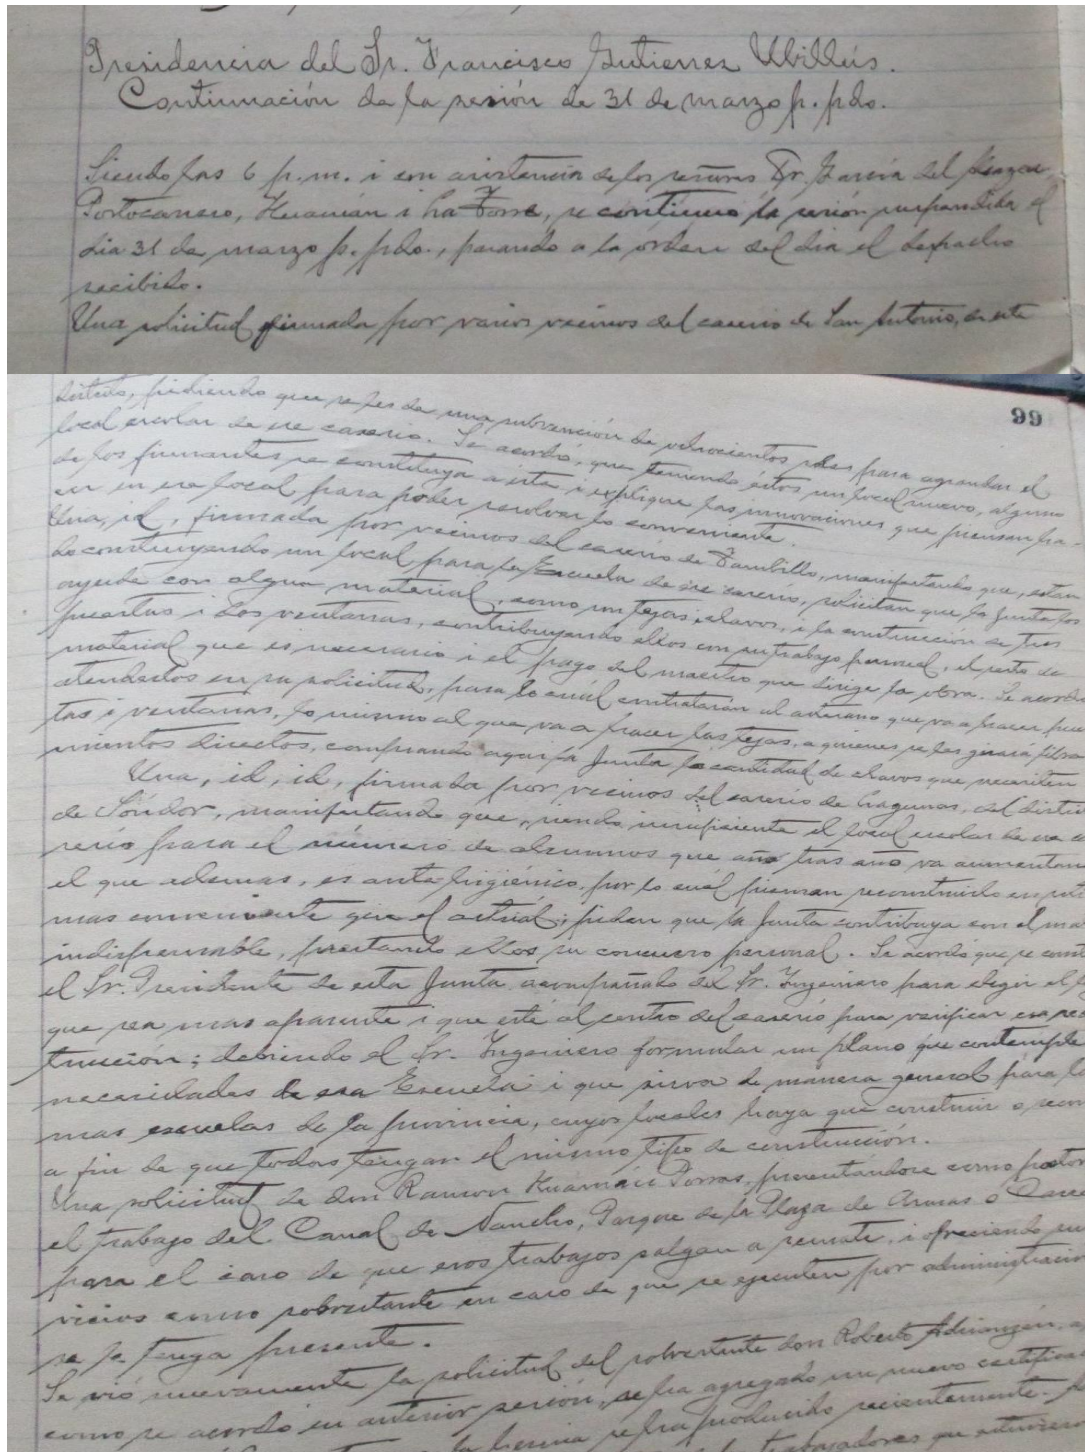 Presidencia del Sr. Francisco Gutierrez Ubillús.
Continuación de la sesión de 31 de marzo p. pdo.
Siendo las 6 p.m. i con asistencia de los señores Dr. García del
Portocarrero, Huamán i La Torre, se continuó la sesión suspendida el
dia 31 de marzo p. pdo., pasando a la orden del dia el despacho
recibido.
Una solicitud firmada por varios vecinos del caserio de San Antonio, de este
99
distrito, pidiendo que se les de una subvención de ochocientos soles para agrandar el
local escolar de ese caserio. Se acordó, que teniendo éstos un local nuevo, alguno
de los firmantes se constituya a ésta i explique las innovaciones que piensan ha-
cer en ese local para poder resolver lo conveniente.
Una, id, firmada por vecinos del caserio de Tambillo, manifestando que, estan
do construyendo un local para la Escuela de ese caserio, solicitan que la Junta los
ayude con algun material, como son tejas, clavos, i la construcción de tres
puertas i dos ventanas, contribuyendo ellos con su trabajo personal, el resto de
material que es necesario i el pago del maestro que dirige la obra. Se acordó
atenderlos en su solicitud, para lo cuál contratarán al artesano que va a hacer puer
tas i ventanas, lo mismo al que va a hacer las tejas, a quienes se les girará libra
mientos directos, comprando aquí la Junta la cantidad de clavos que necesiten
Una, id, id, firmada por vecinos del caserio de Lagunas, del distri
de Sóndor, manifestando que, siendo insuficiente el local escolar de ese ca
serio para el número de alumnos que año tras año va aumentan
el que ademas, es anta-higiénico, por lo cuál piensan reconstruirlo en
mas conveniente que el actuál; piden que la Junta contribuya con el ma
indispensable, prestando ellos su concurso personal. Se acordó que se const
el Sr. Presidente de esta Junta acompañado del Sr. Ingeniero para elegir el
que sea mas aparente i que esté al centro del caserio para verificar esa
trucción; debiendo el Sr. Ingeniero formular un plano que contemple
necesidades de esa Escuela i que sirva de manera general para
mas escuelas de la provincia, cuyos locales haya que construir o recon
a fin de que todos tengan el mismo tipo de construcción.
Una solicitud de don Ramon Huamán Porras, presentándose como postor
el trabajo del Canal de Nancho, Parque de la Plaza de Armas ó
para el caso de que esos trabajos salgan a remate, i ofreciendo
vicios como sobrestante en caso de que se ejecuten por administración
se le tenga presente.
Se vió nuevamente la solicitud del sobrestante don Roberto Adrianzén,
como se acordó en anterior sesión, se ha agregado un nuevo certifica
la se ha producido recientemente.
trabajadores que estuvieron